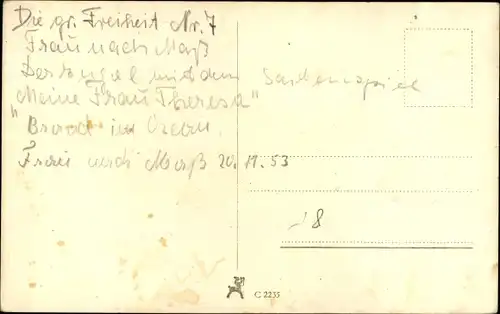 Die gr. Freiheit Nr. 7
Frau nach Maß
Der Engel mit dem Saitenspiel
Meine Frau Theresa"
"Brand im Ozean.
Frau nach Maß 20. 11. 53
-18
C 2233